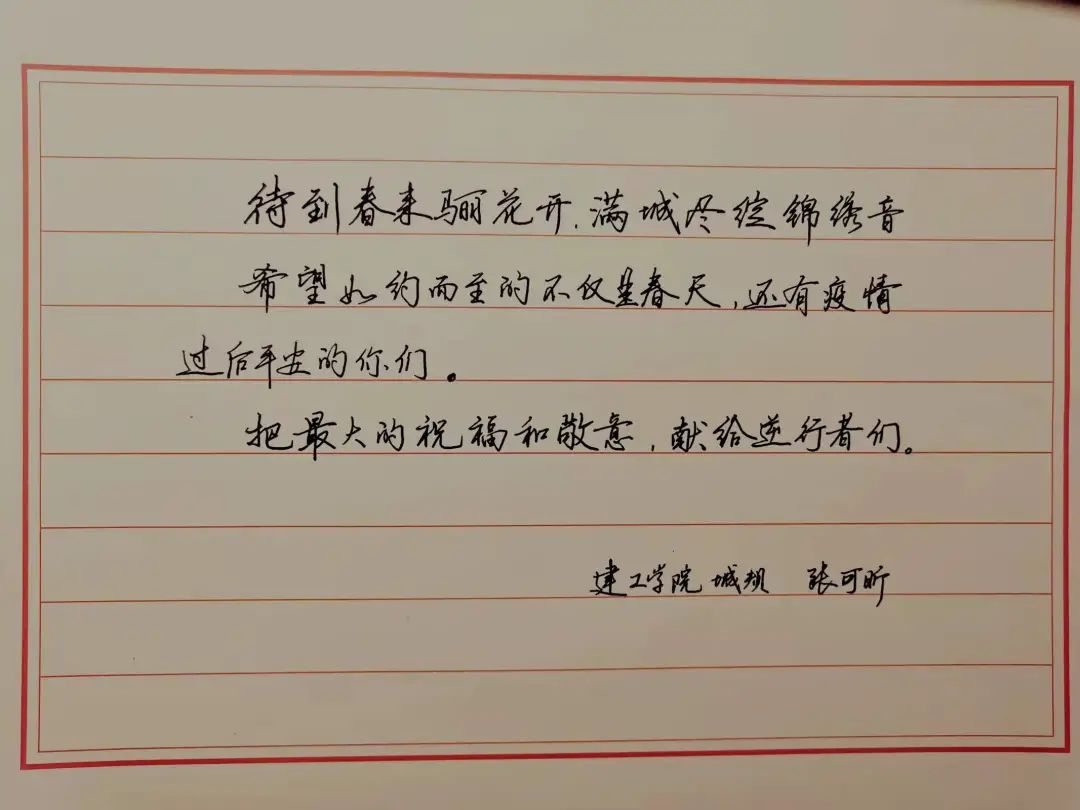 待到春来骊花开,满城尽绽锦绣音
希望如约而至的不仅是春天,还有疫情
过后平安的你们。
把最大的祝福和敬意,献给逆行者们。
建工学院 城规 张可昕